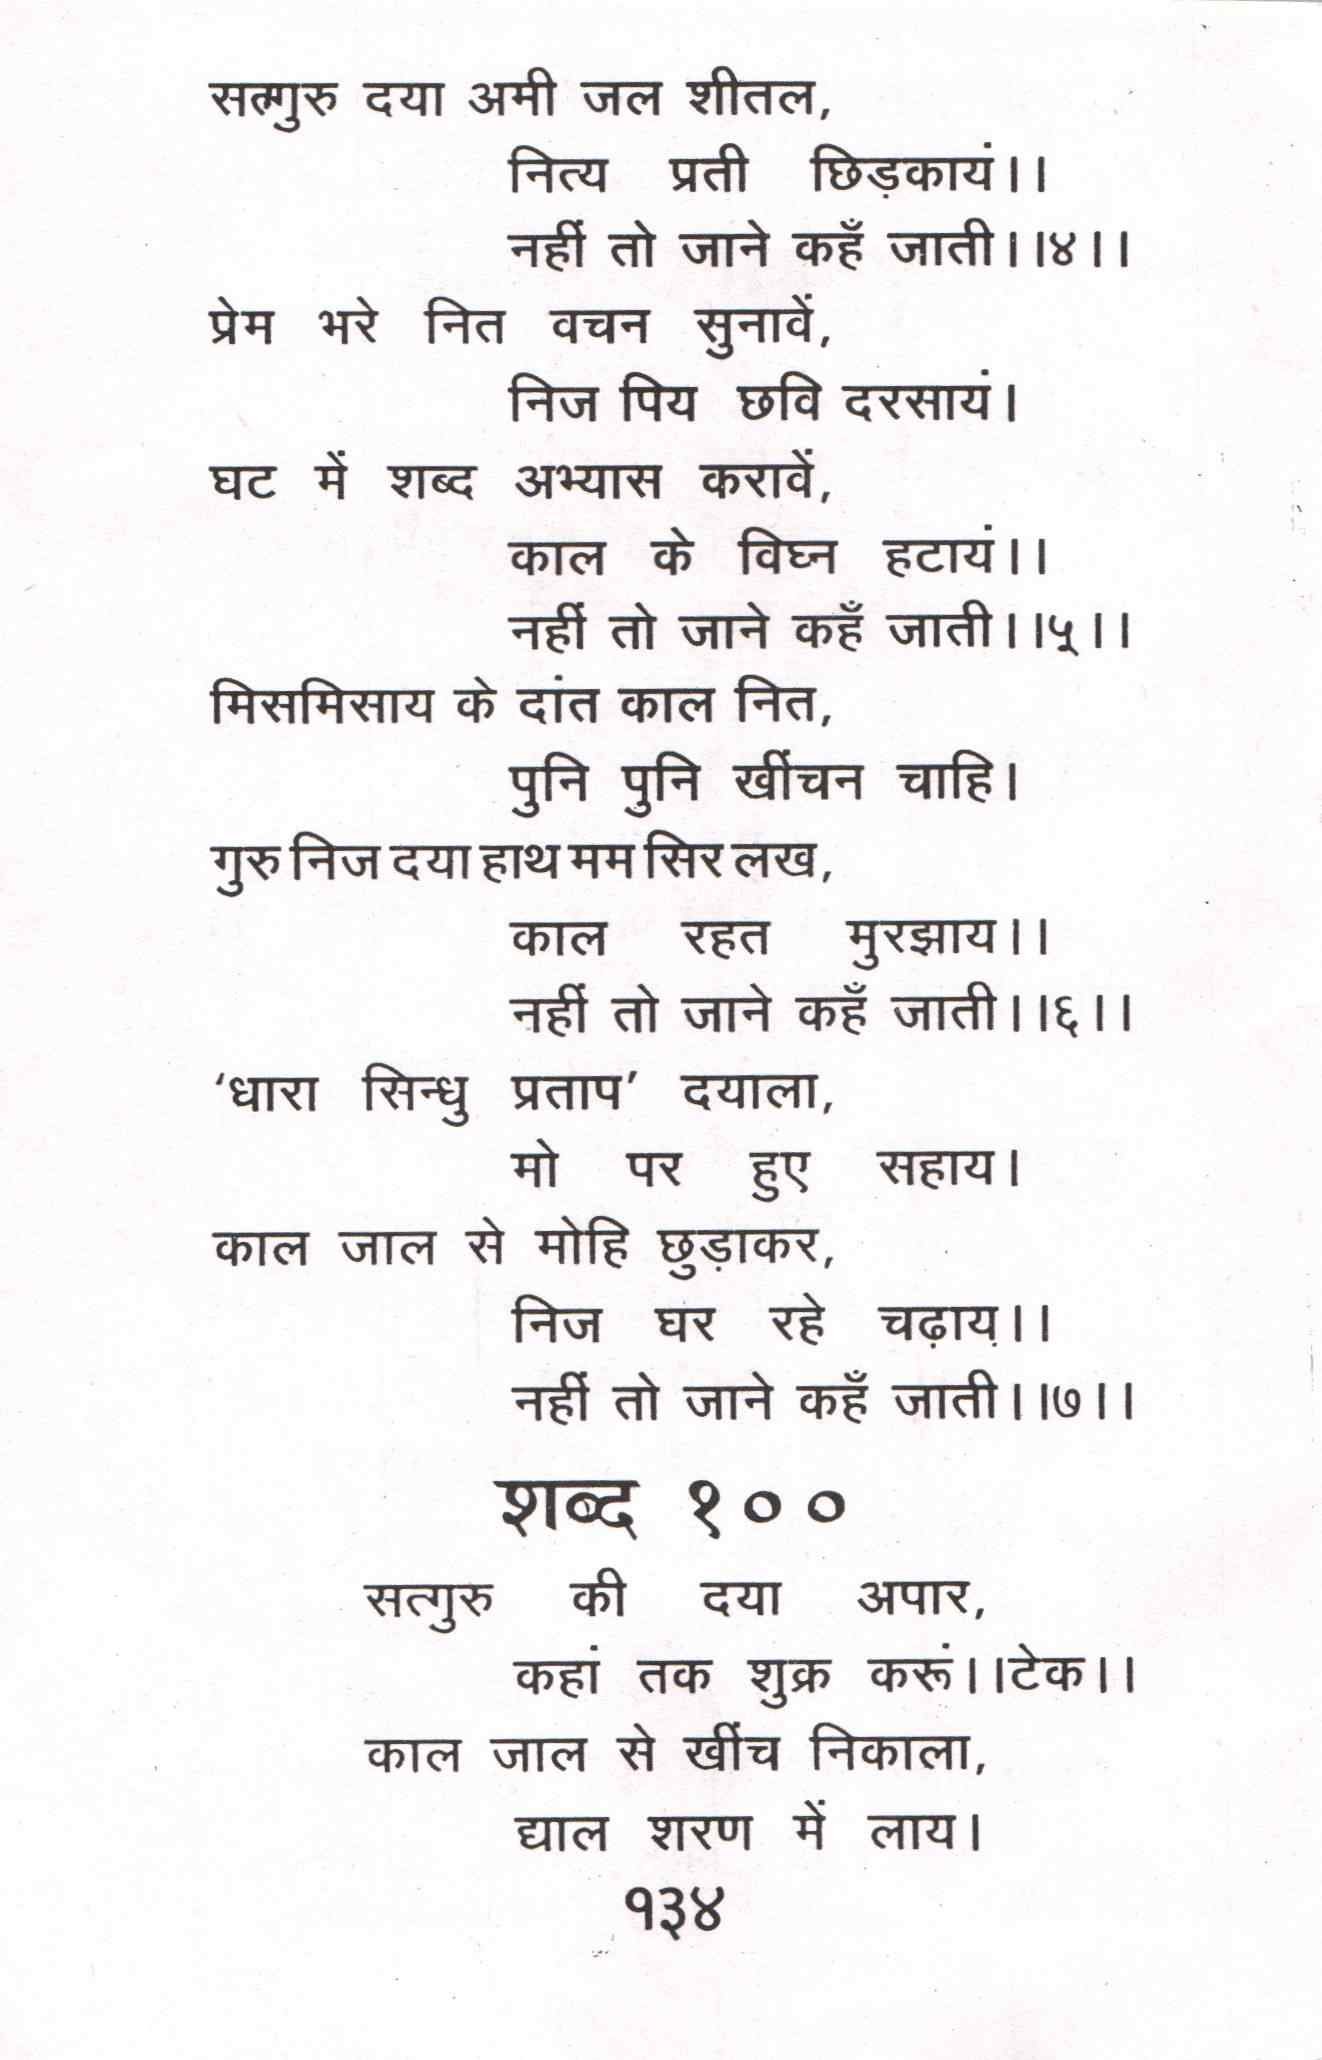 सत्गुरु दया अमी जल शीतल,
नित्य प्रती छिड़कायं।।
नहीं तो जाने कहँ जाती।।४।।
प्रेम भरे नित वचन सुनावें,
निज पिय छवि दरसायं।
घट में शब्द अभ्यास करावें,
काल के विघ्न हटायं।।
नहीं तो जाने कहँ जाती।।५।।
मिसमिसाय के दांत काल नित,
पुनि पुनि खींचन चाहि।
गुरु निज दया हाथ मम सिर लख,
काल रहत मुरझाय।।
नहीं तो जाने कहँ जाती।।६।।
‘धारा सिन्धु प्रताप’ दयाला,
मो पर हुए सहाय।
काल जाल से मोहि छुड़ाकर,
निज घर रहे चढ़ाय़।।
नहीं तो जाने कहँ जाती।।७।।
शब्द १००
सत्गुरु की दया अपार,
कहां तक शुक्र करूं।।टेक।।
काल जाल से खींच निकाला,
द्याल शरण में लाय।
१३४